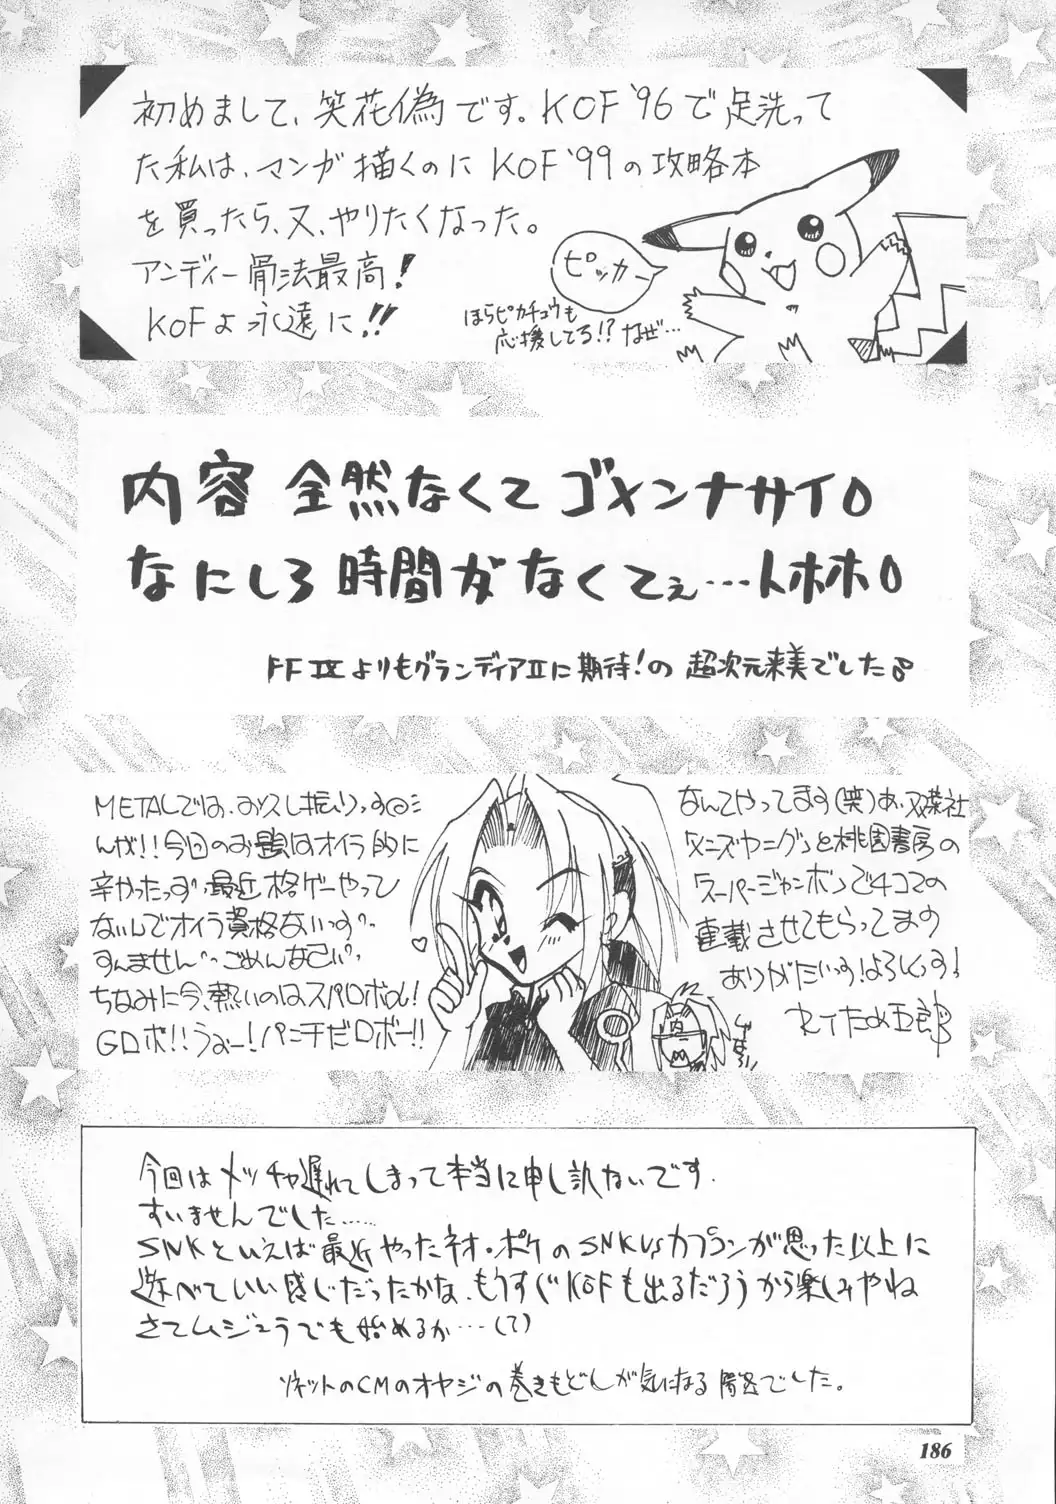 初めまして、笑花偽です。KOF'96で足洗って
た私は、マンガ描くのにKOF'99の攻略本
を買ったら、又、やりたくなった。
アンディー骨法最高!
KOFよ永遠に!!
ピッカー
ほらピカチュウも
応援してる!?なぜ…
内容 全然なくてゴメンナサイ。
なにしろ時間がなくてぇ…トホホ。
FFⅨよりもグランディアⅡに期待!の 超次元来美でした
METALでは、お久し振りっす@
んが!!今回のお題はオイラ的に
辛かったっす、最近格ゲーやって
ないんでオイラ資格ないっす…
すんません…ごめんなさい…
ちなみに今、熱いのはスパロボα!
Gロボ!!うぉー!パンチだロボー!!
なんてやってます(笑)あ、双葉社
メンズヤングと桃園書房の
スーパージャンボンで4コマの
連載させてもらってます
ありがたいっす!よろしくっす!
内
ですっ
今回はメッチャ遅れてしまって本当に申し訳ないです.
すいませんでした……
SNKといえば最近やったネオ・ポケのSNKvsカプコンが思った以上に
遊べていい感じだったかな、もうすぐKOFも出るだろうから楽しみやね
さてムジュラでも始めるか…(て)
ソネットのCMのオヤジの巻きもどしが気になる でした。
186